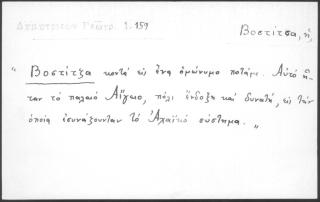 Δημητριέων Γεωγρ. 1.159
Βοστίτσα, ἡ,
„ Βοστίτζα κοντά εἰς ἕνα ὁμώνυμο ποτάμι. Αὐτό ἦ-
ταν τό παλαιό Αἴγιο, πόλι ἔνδοξη καί δυνατή, εἰς τήν
ὁποία ἐσυνάζουνταν τό Ἀχαϊκό σύστημα. „